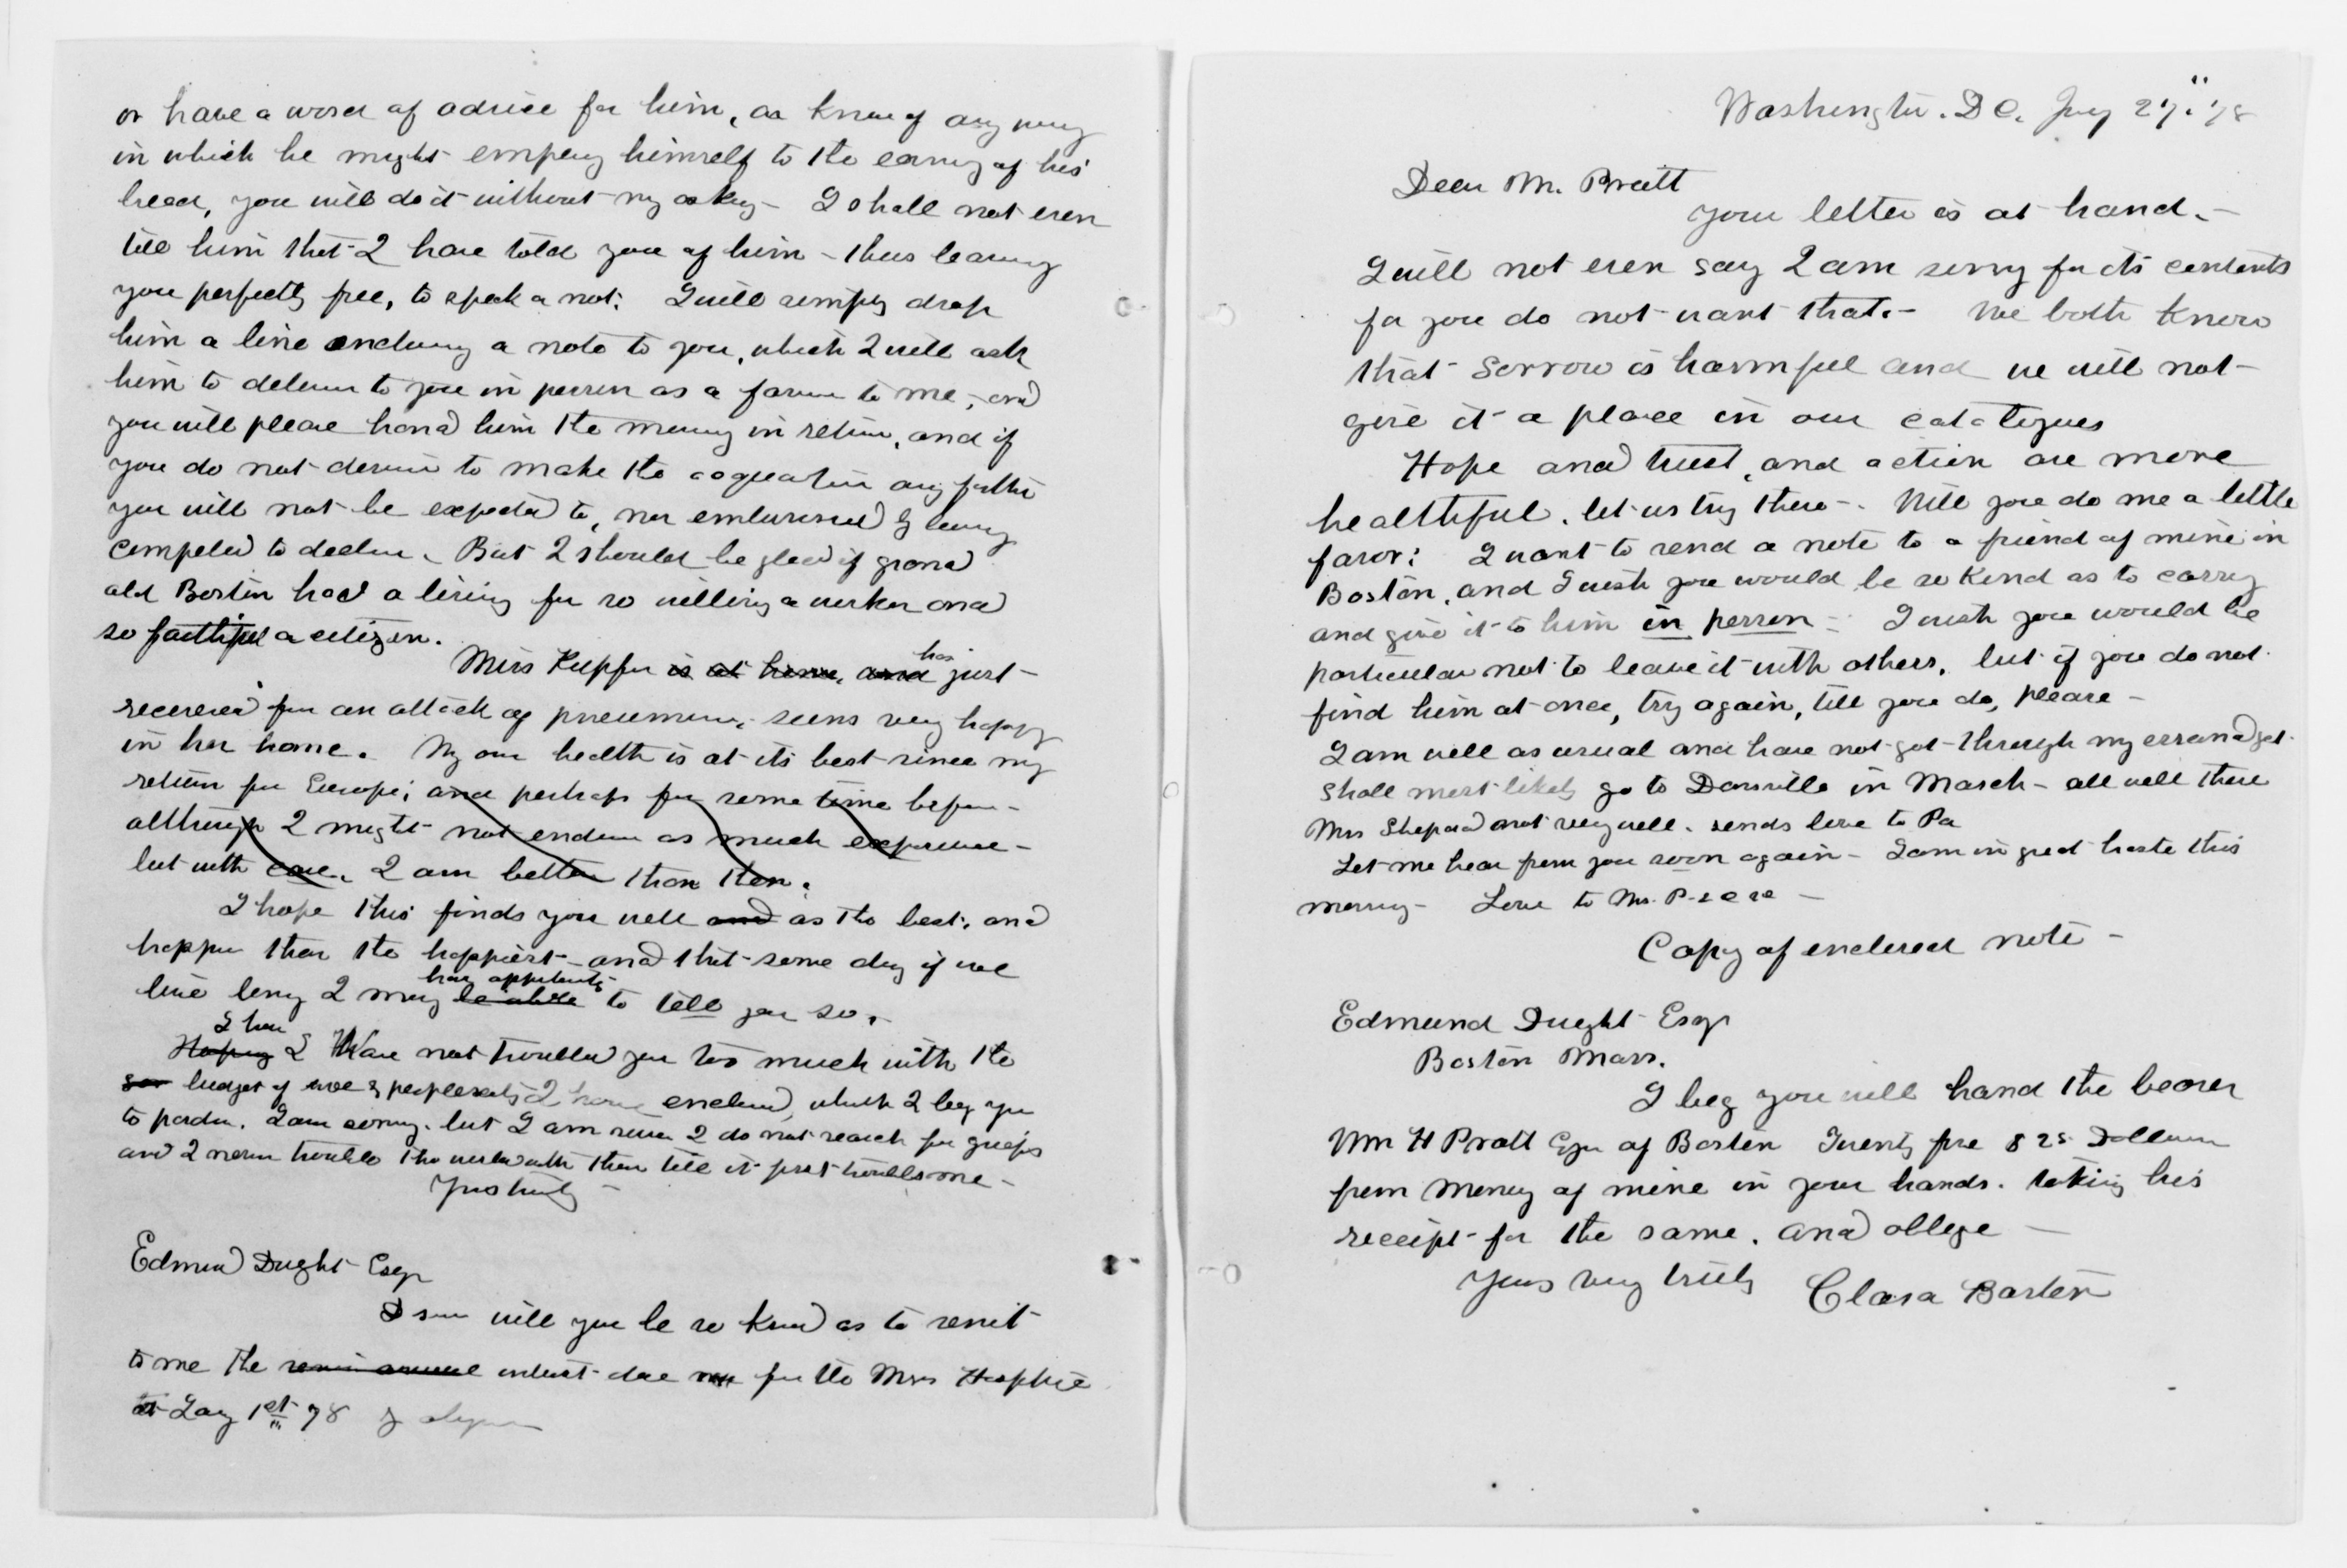 or have a word of advice for him, or know of any way
in which he might employ himself to the earning of his
bread, you will do it without my asking - I shall not even
tell him that I have told you of him - thus leaving
you perfectly free, to speak or not: I will simply drop
him a line enclosing a note to you, which I will ask
him to deliver to you in person as a favor to me, - and
you will please hand him the money in return, and if
you do not desire to make the acquaintance any further
you will not be expected to, nor embarrassed by being
compelled to decline. But I should be glad if grand
old Boston had a living for so willing a worker and
so faithful a citizen.
Miss Kupfer is at home, and has just
recovered from an attack of pneumonia, - seems very happy
in her home. My own health is at its best since my
return from Europe; and perhaps for some time before -
although I might not endure as much exposure -
but with care, I am better than then.
I hope this finds you well and as the best, and
happier than the happiest - and that some day if we
live long I may be able have opportunity to tell you so. -
Hoping I have I Have not troubled you too much with the
budget of woe & perplexity I have enclosed, which I beg you
to pardon. I am sorry, but I am sure I do not search for griefs
and I never trouble the world with them till it first troubles me -
Yours truly -
Edmund Dwight Esqr
D sir will you be so kind as to remit
to me the semi annual interest due for the Mrs
to Jany 1st 78
Washington. D C. Jany 27." 78
Dear Mr. Pratt
your letter is at hand. -
I will not even say I am sorry for its contents
for you do not want that. - We both know
that sorrow is harmful and we will not
give it a place in our catalogues
Hope and trust, and action are more
healthful. let us try these -. Will you do me a little
favor: I want to send a note to a friend of mine in
Boston, and I wish you would be so kind as to carry
and give it to him in person - I wish you would be
particular not to leave it with others, but if you do not
find him at once, try again, till you do, please -
I am well as usual and have not got through my errand yet.
shall most likely go to Dansville in March - all well there
Mrs Shepard not very well. sends love to Pa
Let me hear from you soon again - I am in great haste this
morning - Love to Mr. P-
Copy of enclosed note -
Edmund Dwight Esqr
Boston Mass.
I beg you will hand the bearer
Wm H Pratt Esqr of Boston Twenty five $25 Dollars
from money of mine in your hands. taking his
receipt for the same. and oblige -
Yours very truly Clara Barton